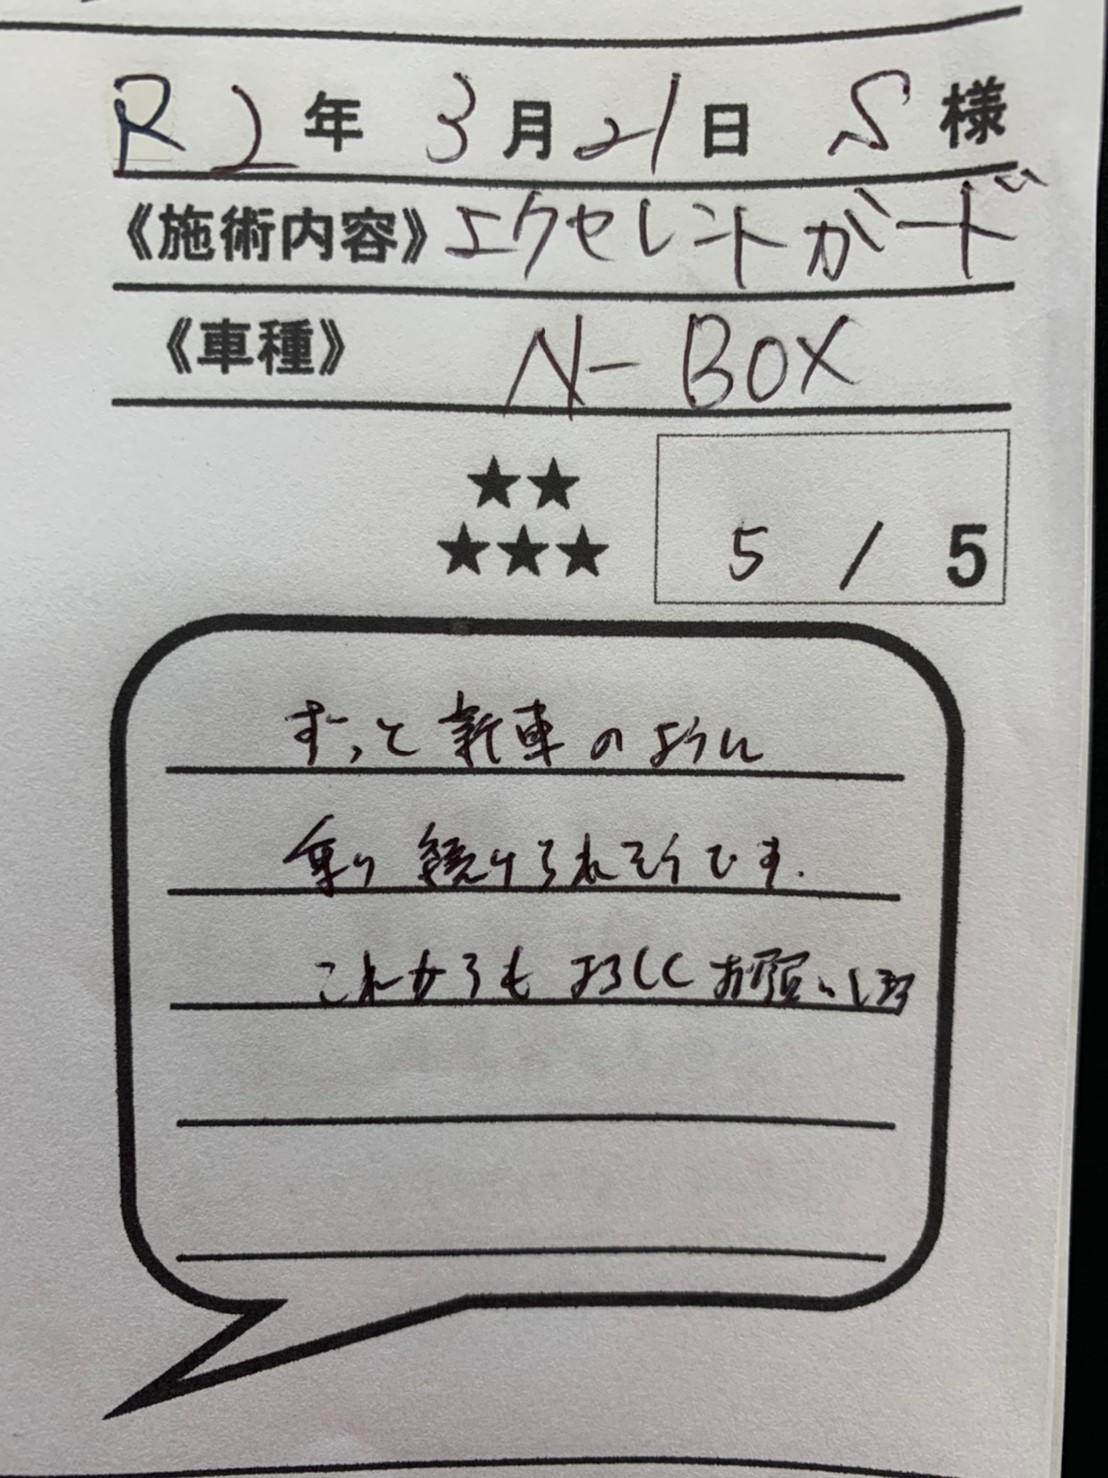 R2年3月21日 S様
《施術内容》エクセレントガード
《車種》 N-BOX
★★
★★★ 5 / 5
ずっと新車のように
乗り続けられそうです.
これからもよろしくお願いします